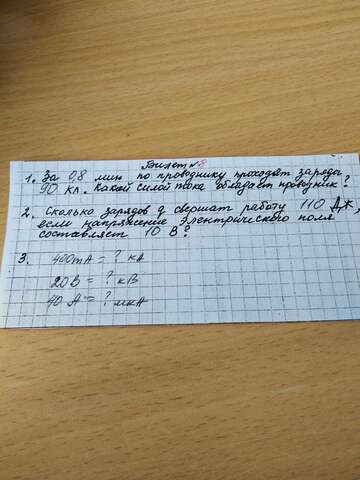 Билет №8
1. За 0,8 мин по проводнику проходят заряды
90 кл. Какой силой тока обладает проводник?
2. Сколько зарядов q свершат работу 110 Дж,
если напряжение электрического поля
составляет 10 В?
3. 400mA = ? кА
20В = ? кВ
40 А = ? мкА